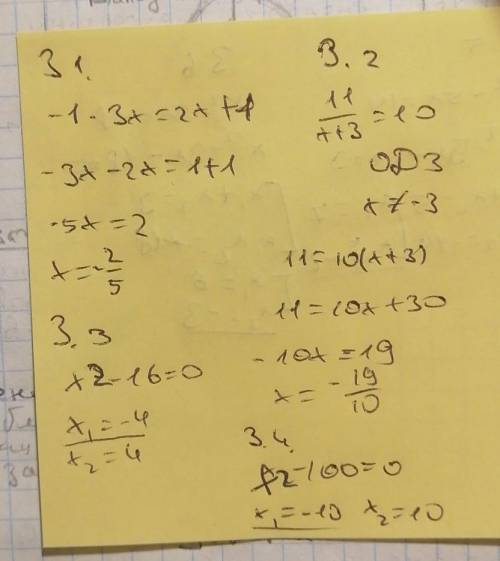 3 1.
-1 - 3x = 2x + 1
-3x - 2x = 1 + 1
-5x = 2
x = -2/5
3. 3
x2 - 16 = 0
x₁ = -4
x₂ = 4
3. 2
11/x+3 = 10
ОДЗ
x ≠ -3
11 = 10(x + 3)
11 = 10x + 30
-10x = 19
x = -19/10
3.4.
x2 - 100 = 0
x₁ = -10 x₂ = 10